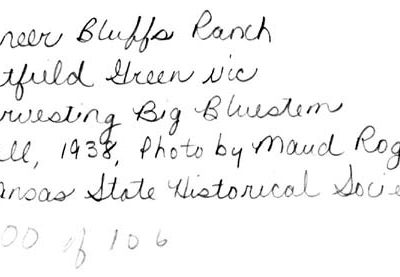 neer Bluffs Ranch
tfield Green vic
rvesting Big Bluestem
ll, 1938, Photo by Maud Rog
ansas State Historical Socie
00 of 106